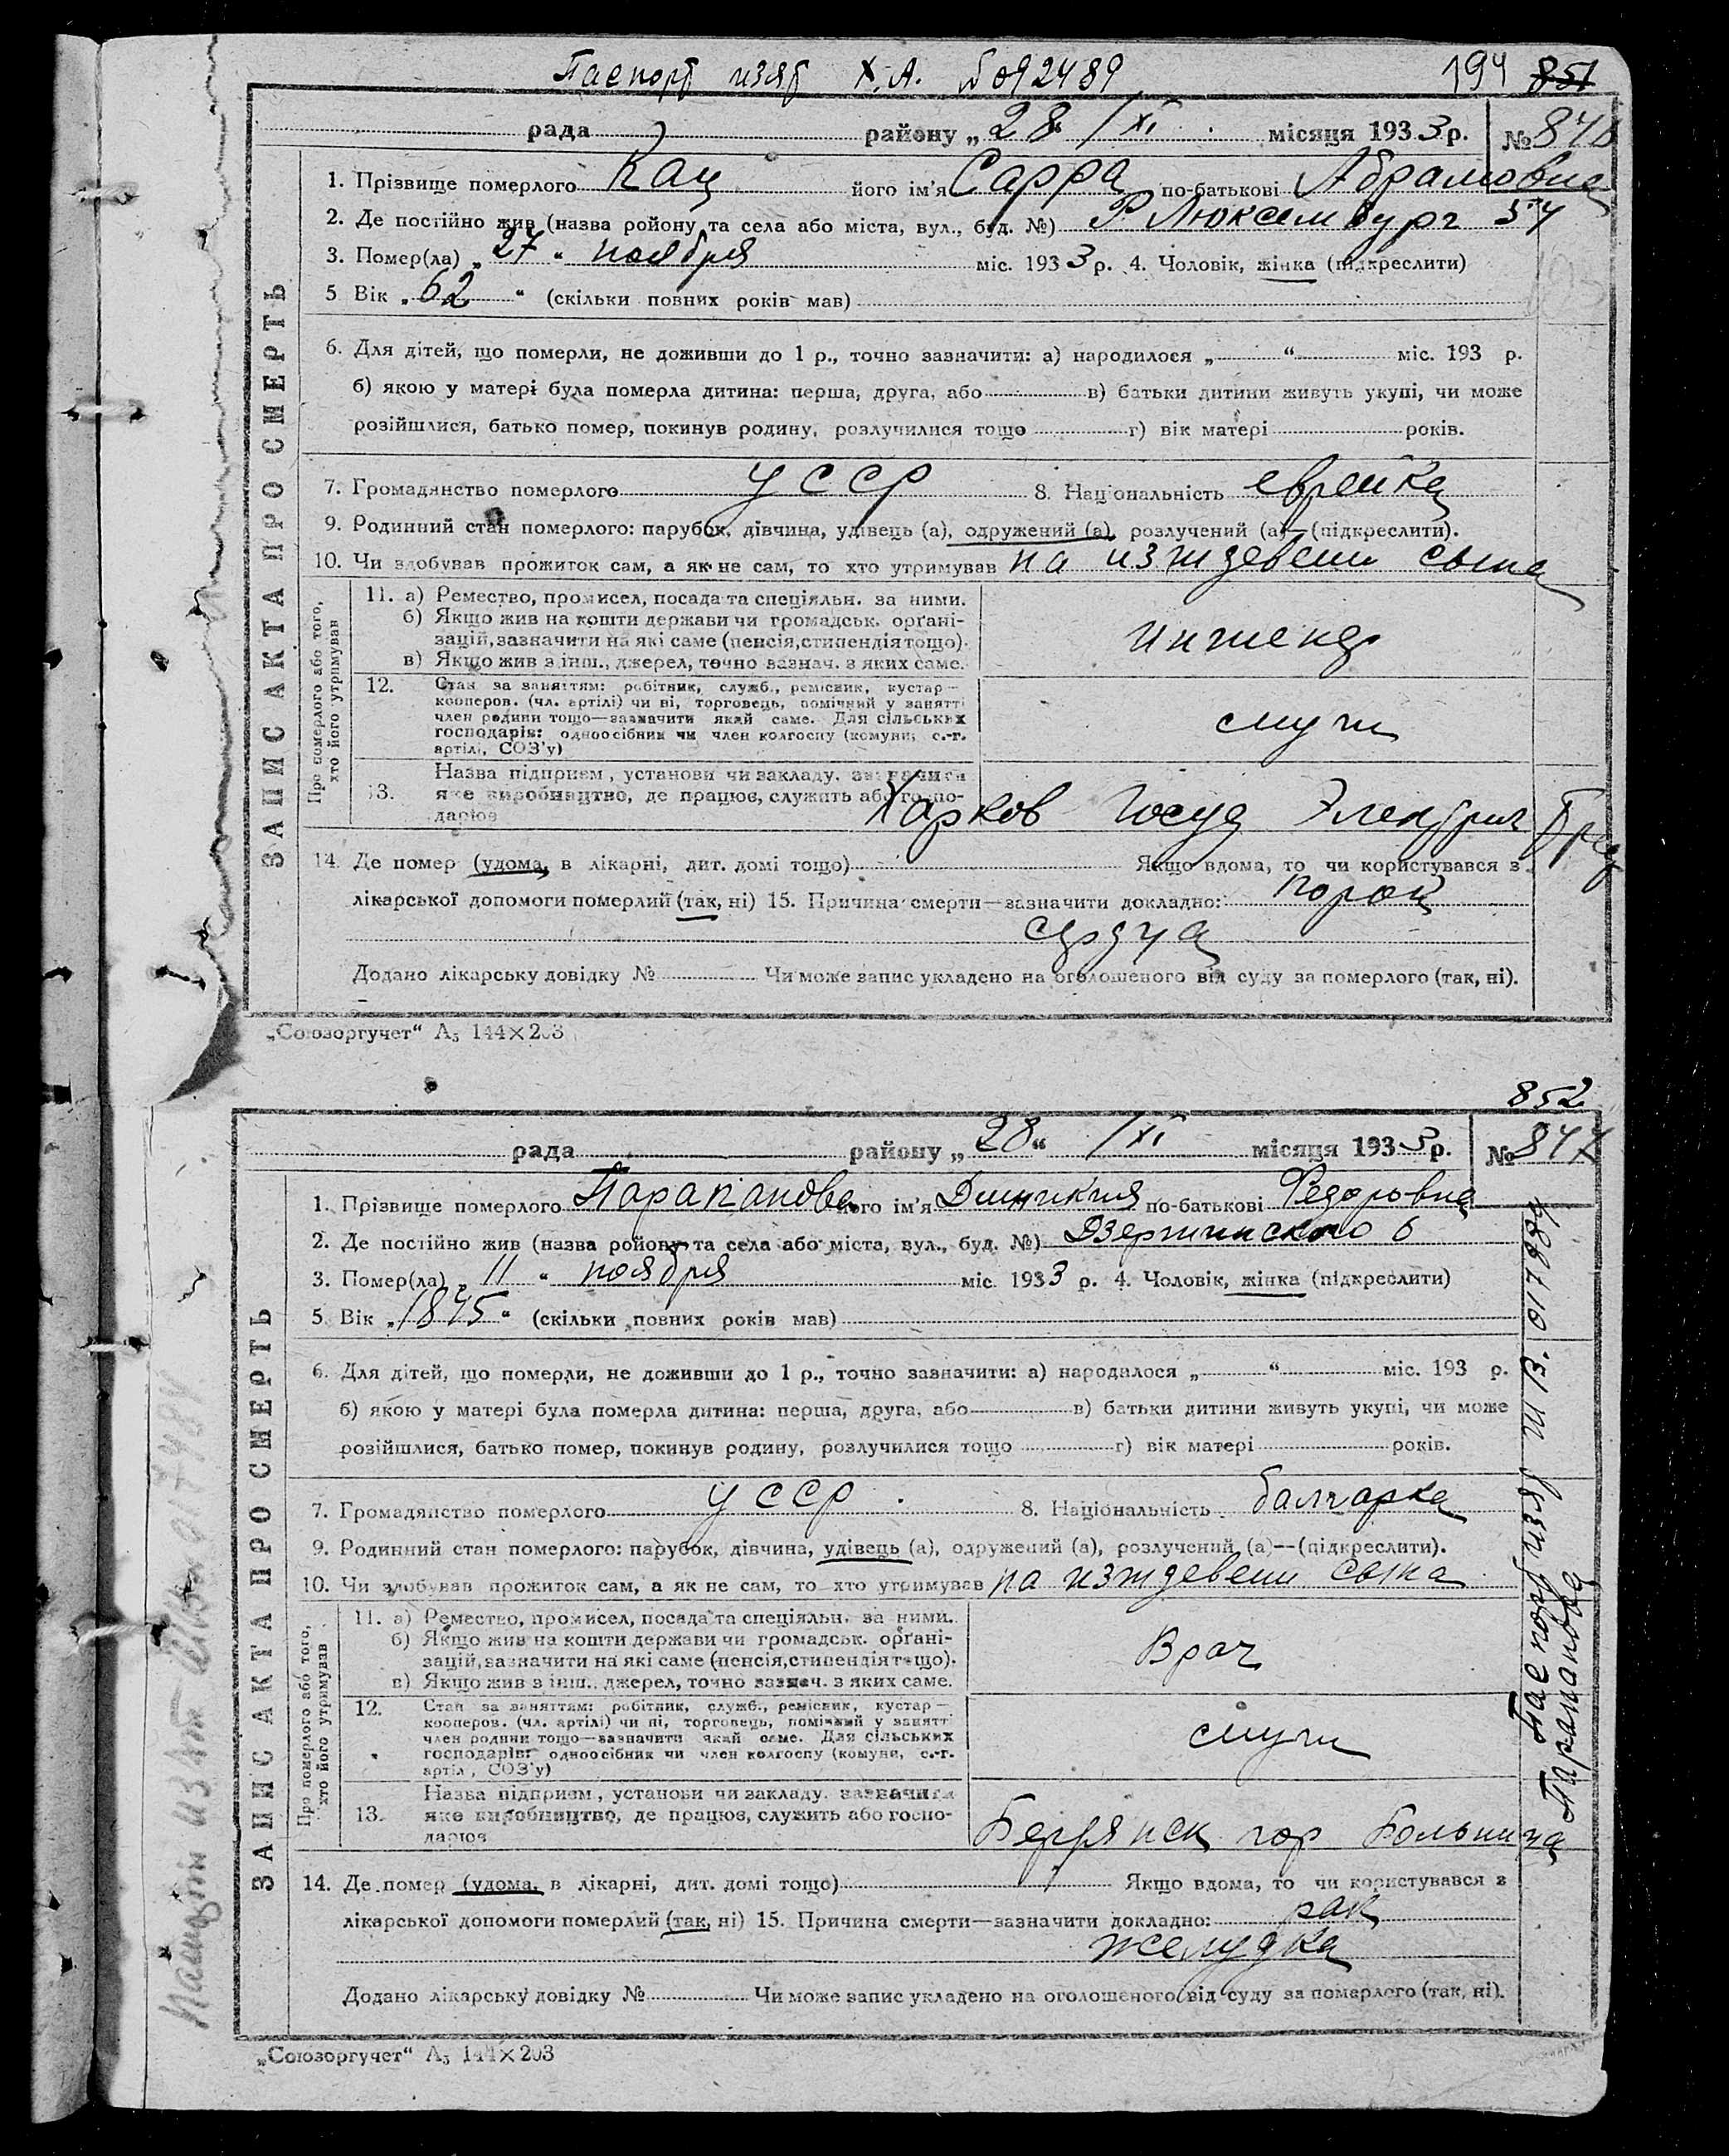 Паспорт изят Х.А. № 092489 194 851
рада району „28“ /XI місяця 1933 р. № 846
1. Прізвище померлого Кац його ім'я Сарра по-батькові Абрамовна
2. Де постійно жив (назва ройону та села або міста, вул., буд. №) Р Люксембург 54
3. Помер(ла) „27“ ноября міс. 1933 р. 4. Чоловік, жінка (підкреслити)
5 Вік „62“ (скільки повних років мав)
6. Для дітей, що померли, не доживши до 1 р., точно зазначити: а) народилося „ “ міс. 193 р.
б) якою у матері була померла дитина: перша, друга, або в) батьки дитини живуть укупі, чи може
розійшлися, батько помер, покинув родину, розлучилися тощо г) вік матері років.
7. Громадянство померлого УССР 8. Національність еврейка
9. Родинний стан померлого: парубок, дівчина, удівець (а), одружений (а), розлучений (а)—(підкреслити).
10. Чи здобував прожиток сам, а як не сам, то хто утримував на изждевени сына
ЗАПИС АКТА ПРО СМЕРТЬ
Про померлого або того, хто його утримував
11. а) Ремество, промисел, посада та спеціяльн. за ними.
б) Якщо жив на кошти держави чи громадськ. орґані-
зацій, зазначити на які саме (пенсія, стипендія тощо).
в) Якщо жив з інш., джерел, точно зазнач. з яких саме.
инженер
12. Стан за заняттям: робітник, служб., ремісник, кустар—
кооперов. (чл. артілі) чи ні, торговець, помічний у занятті
член родини тощо—зазначити який саме. Для сільських
господарів: одноосібник чи член колгоспу (комуни, с.-г.
артілі, СОЗ'у)
служ
13. Назва підприєм, установи чи закладу, зазначити
яке виробництво, де працює, служить або госпо-
дарює
Харков Госуд Электрич Трест
14. Де помер (удома, в лікарні, дит. домі тощо) Якщо вдома, то чи користувався з
лікарської допомоги померлий (так, ні) 15. Причина смерти—зазначити докладно: порок
сердца
Додано лікарську довідку № Чи може запис укладено на оголошеного від суду за померлого (так, ні).
„Союзоргучет“ А₅ 144×203
852
рада району „28“ /XI місяця 1933 р. № 847
1. Прізвище померлого Парапанова його ім'я по-батькові Федоровна
2. Де постійно жив (назва ройону та села або міста, вул., буд. №) Дзержинского 6
3. Помер(ла) „11“ ноября міс. 1933 р. 4. Чоловік, жінка (підкреслити)
5. Вік „1845“ (скільки повних років мав)
6. Для дітей, що померли, не доживши до 1 р., точно зазначити: а) народилося „ “ міс. 193 р.
б) якою у матері була померла дитина: перша, друга, або в) батьки дитини живуть укупі, чи може
розійшлися, батько помер, покинув родину, розлучилися тощо г) вік матері років.
7. Громадянство померлого УССР 8. Національність болгарка
9. Родинний стан померлого: парубок, дівчина, удівець (а), одружений (а), розлучений (а)—(підкреслити).
10. Чи здобував прожиток сам, а як не сам, то хто утримував на изждевени сына
ЗАПИС АКТА ПРО СМЕРТЬ
Про померлого або того, хто його утримував
11. а) Ремество, промисел, посада та спеціяльн. за ними.
б) Якщо жив на кошти держави чи громадськ. орґані-
зацій, зазначити на які саме (пенсія, стипендія тощо).
в) Якщо жив з інш., джерел, точно зазнач. з яких саме.
Врач
12. Стан за заняттям: робітник, служб., ремісник, кустар—
кооперов. (чл. артілі) чи ні, торговець, помічний у занятті
член родини тощо—зазначити який саме. Для сільських
господарів: одноосібник чи член колгоспу (комуни, с.-г.
артілі, СОЗ'у)
служ
13. Назва підприєм, установи чи закладу, зазначити
яке виробництво, де працює, служить або госпо-
дарює
Бердянск гор Больница
14. Де помер (удома, в лікарні, дит. домі тощо) Якщо вдома, то чи користувався з
лікарської допомоги померлий (так, ні) 15. Причина смерти—зазначити докладно: рак
желудка
Додано лікарську довідку № Чи може запис укладено на оголошеного від суду за померлого (так, ні).
„Союзоргучет“ А₅ 144×203
Паспорт изят ШВ. 017984
Парапанова